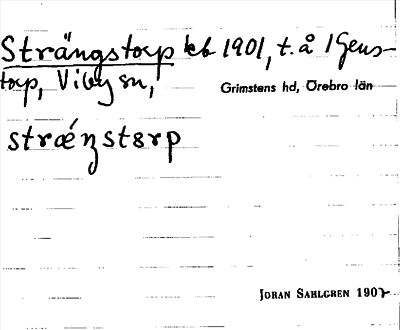 Strängstorp kb 1901, t. å Igens-
torp, Viby sn,
Grimstens hd, Örebro län
strǽŋstɞrp
JORAN SAHLGREN 1907